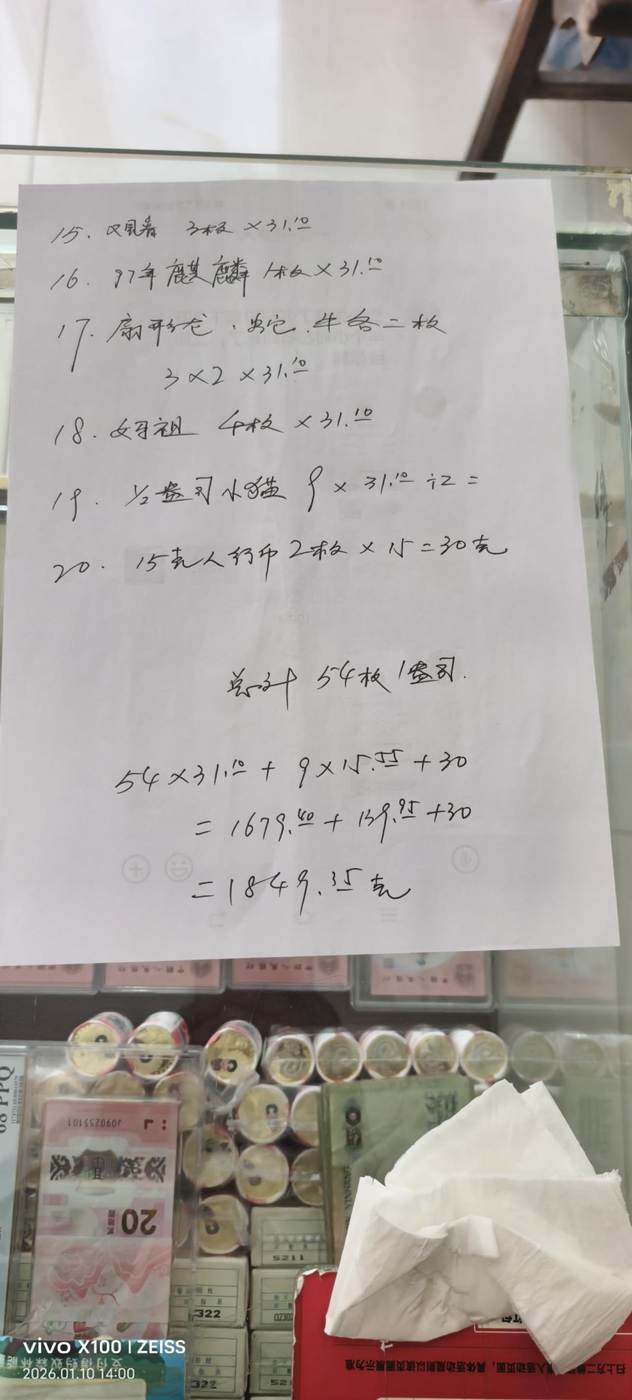 15. 观音 3枚 × 31.10
16. 97年麒麟 1枚 × 31.10
17. 扇形龙、蛇、牛各二枚
3 × 2 × 31.10
18. 妈祖 4枚 × 31.10
19. 1/2盎司小猫 9 × 31.10 ÷ 2 =
20. 15克人行币 2枚 × 15 = 30克
总计 54枚 1盎司.
54 × 31.10 + 9 × 15.55 + 30
= 1679.40 + 139.95 + 30
= 1849.35 克
J090255101
20
50
5211
322
322
vivo X100 | ZEISS
2026.01.10 14:00